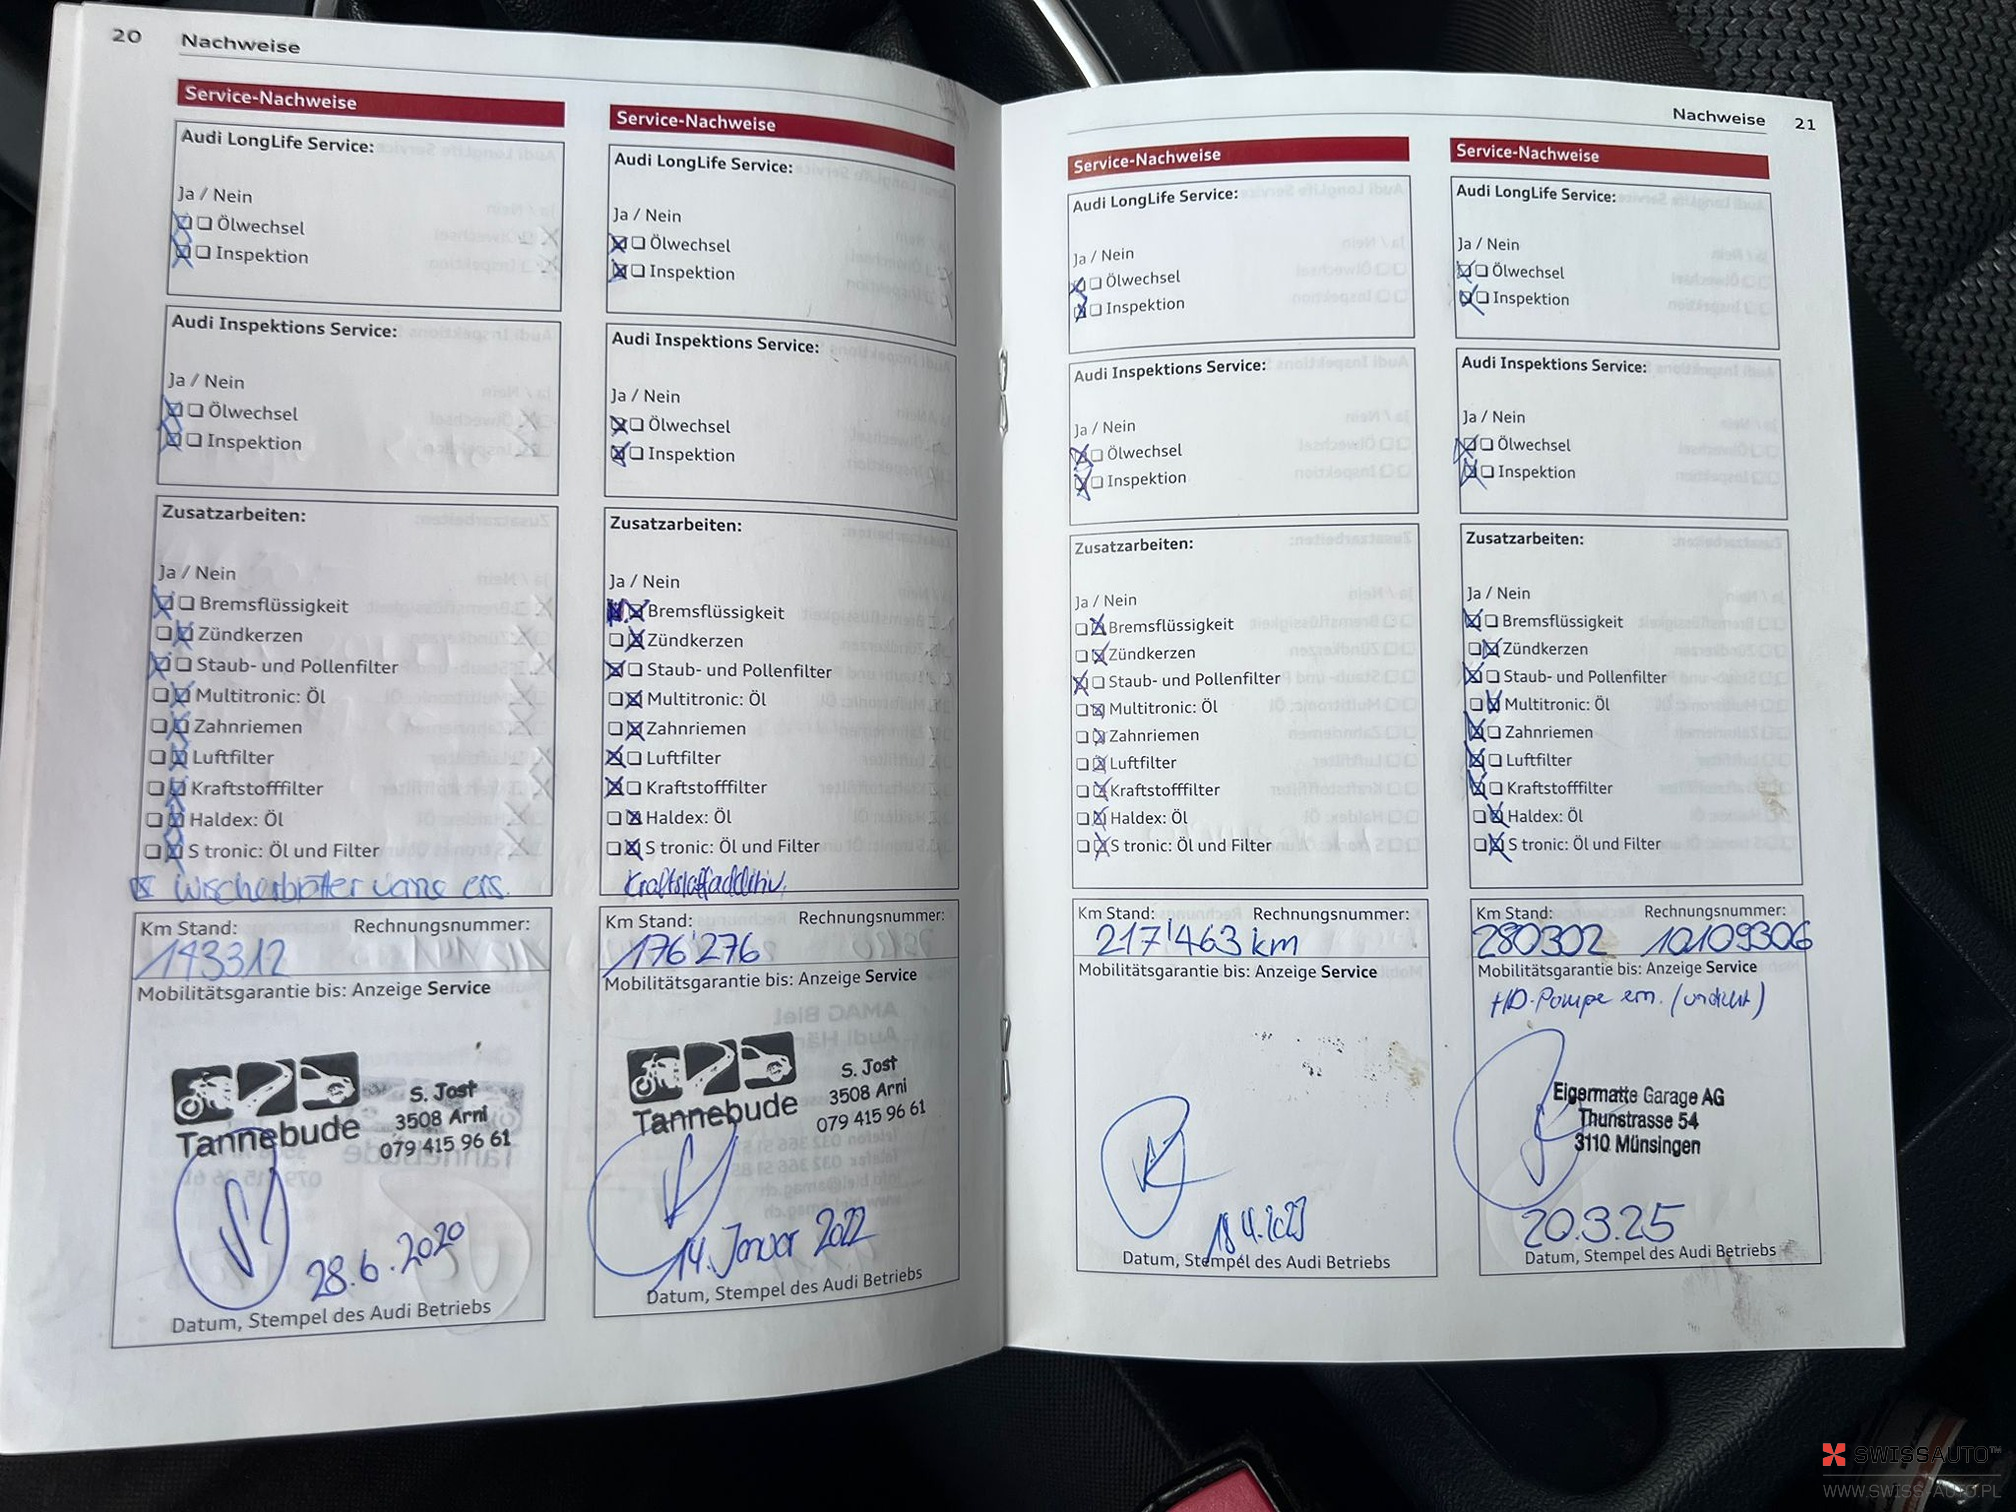 20 Nachweise
Service-Nachweise
Audi LongLife Service:
Ja / Nein
Ölwechsel
Inspektion
Audi Inspektions Service:
Ja / Nein
Ölwechsel
Inspektion
Zusatzarbeiten:
Ja / Nein
Bremsflüssigkeit
Zündkerzen
Staub- und Pollenfilter
Multitronic: Öl
Zahnriemen
Luftfilter
Kraftstofffilter
Haldex: Öl
S tronic: Öl und Filter
Wischerblätter vorne ers.
Km Stand: Rechnungsnummer:
143312
Mobilitätsgarantie bis: Anzeige Service
Tannebude
S. Jost
3508 Arni
079 415 96 61
28.6.2020
Datum, Stempel des Audi Betriebs
Service-Nachweise
Audi LongLife Service:
Ja / Nein
Ölwechsel
Inspektion
Audi Inspektions Service:
Ja / Nein
Ölwechsel
Inspektion
Zusatzarbeiten:
Ja / Nein
Bremsflüssigkeit
Zündkerzen
Staub- und Pollenfilter
Multitronic: Öl
Zahnriemen
Luftfilter
Kraftstofffilter
Haldex: Öl
S tronic: Öl und Filter
Kraftstoffadditiv.
Km Stand: Rechnungsnummer:
176'276
Mobilitätsgarantie bis: Anzeige Service
Tannebude
S. Jost
3508 Arni
079 415 96 61
14. Januar 2022
Datum, Stempel des Audi Betriebs
Nachweise 21
Service-Nachweise
Audi LongLife Service:
Ja / Nein
Ölwechsel
Inspektion
Audi Inspektions Service:
Ja / Nein
Ölwechsel
Inspektion
Zusatzarbeiten:
Ja / Nein
Bremsflüssigkeit
Zündkerzen
Staub- und Pollenfilter
Multitronic: Öl
Zahnriemen
Luftfilter
Kraftstofffilter
Haldex: Öl
S tronic: Öl und Filter
Km Stand: Rechnungsnummer:
217'463 km
Mobilitätsgarantie bis: Anzeige Service
18.4.2023
Datum, Stempel des Audi Betriebs
Service-Nachweise
Audi LongLife Service:
Ja / Nein
Ölwechsel
Inspektion
Audi Inspektions Service:
Ja / Nein
Ölwechsel
Inspektion
Zusatzarbeiten:
Ja / Nein
Bremsflüssigkeit
Zündkerzen
Staub- und Pollenfilter
Multitronic: Öl
Zahnriemen
Luftfilter
Kraftstofffilter
Haldex: Öl
S tronic: Öl und Filter
Km Stand: Rechnungsnummer:
280302 10109306
Mobilitätsgarantie bis: Anzeige Service
HD-Pumpe ern. (undicht)
Eigermatte Garage AG
Thunstrasse 54
3110 Münsingen
20.3.25
Datum, Stempel des Audi Betriebs
SWISSAUTO™
WWW.SWISS-AUTO.PL